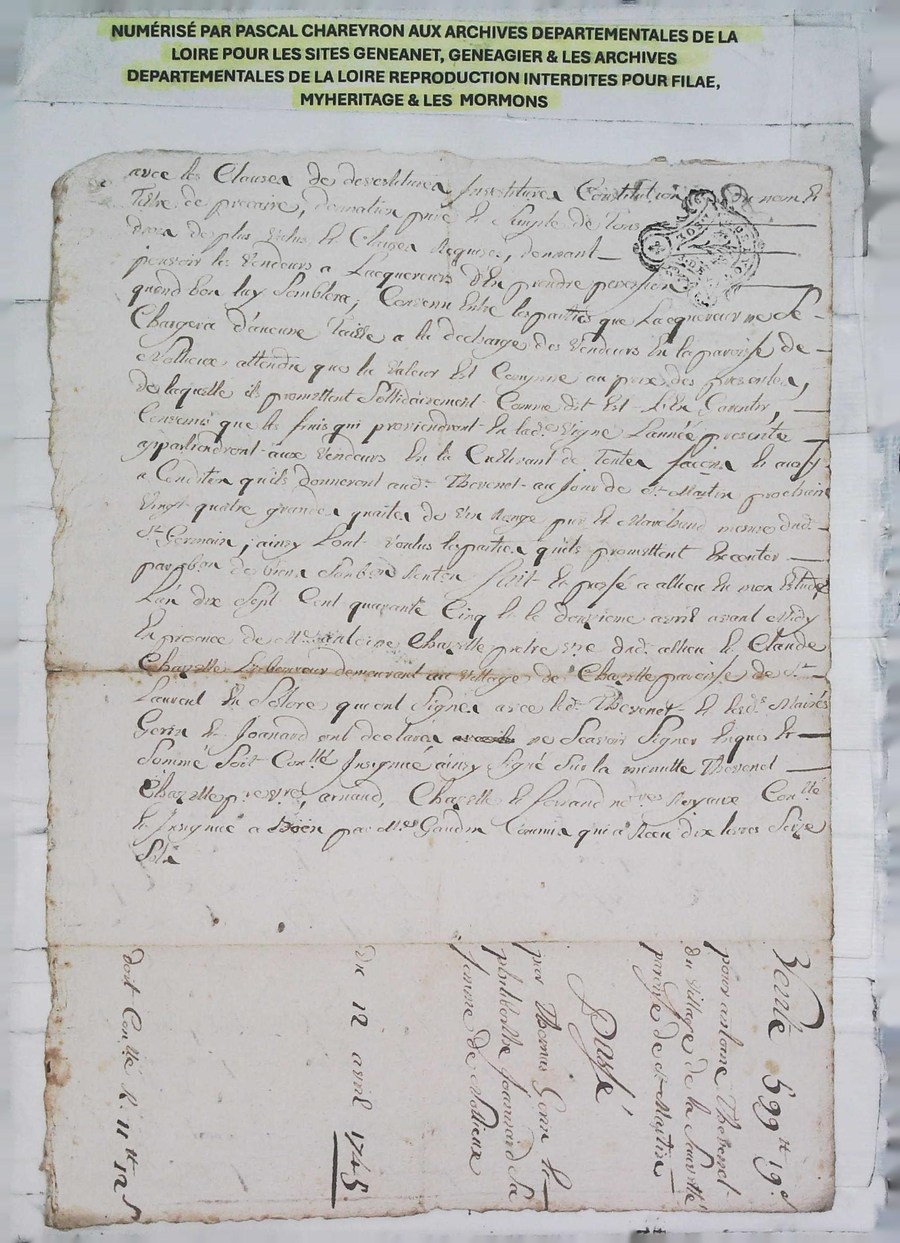 NUMÉRISÉ PAR PASCAL CHAREYRON AUX ARCHIVES DEPARTEMENTALES DE LA
LOIRE POUR LES SITES GENEANET, GENEAGIER & LES ARCHIVES
DEPARTEMENTALES DE LA LOIRE REPRODUCTION INTERDITES POUR FILAE,
MYHERITAGE & LES MORMONS
avec les Clauses de devestitures Investitures Constitution du nom et
Titre de precaire, donnation pure et Simple de Tous
droits de plus value et Clauses Requises, donnant
pouvoir les vendeurs a Lacquereur d'En prendre possession
quand bon luy Semblera; Convenu Entre les parties que Lacquereur ne Se
Chargera d'aucune taille a la decharge des vendeurs En la paroisse de
Nollieux attendu que la valeur Est Comprise au prix des presentes,
de laquelle ils promettent Sollidairement Comme dit Est L'En Garentir,
Convenus que les fruis qui proviendront En lad. vigne L'année presente
appartiendront aux vendeurs En la Cultivant de Toutes façons et aussy
a Condition qu'ils donneront aud. Thevenet au jour de St. Martin prochain
vingt quatre grandes quartes de vin Rouge pur et Marchand mesure dud.
St. Germain; ainsy Lont voulus les parties qu'ils promettent Executer
par obon de biens Soubon Renton fait et passé a allieu En mon Etude
L'an dix Sept Cent quarante Cinq et le douzieme avril avant Midy
En presence de Mre. Antoine Chazelle pretre vre. dud. allieu et Claude
Chazelle Laboureur demeurant au village de Chazelle paroisse de St.
Laurent En Solore qui ont Signés avec led. Thevenet et lesd. Mariés
Gorin et Joanard ont declarés ne Scavoir Signer Enquis et
Sommé Soit Conllé Insignué ainsy Signé Sur la minutte Thevenet
Chazelle p.re v.re, arnaud, Chazelle et ferrand no.res Royaux Con.llé
et Insignué a Böen par M.re Gaudin Commis qui a Recu dix livres Seize
Sols
Vente 599 tt 19 s
pour antoine Thevenet
du village de la
paroisse de St. Martin
Passé
par Thomas Gorin et
philiberthe Joannard Sa
femme de Nollieux
Du 12 avril 1745
dort Conllé R. 11 tt 12 s